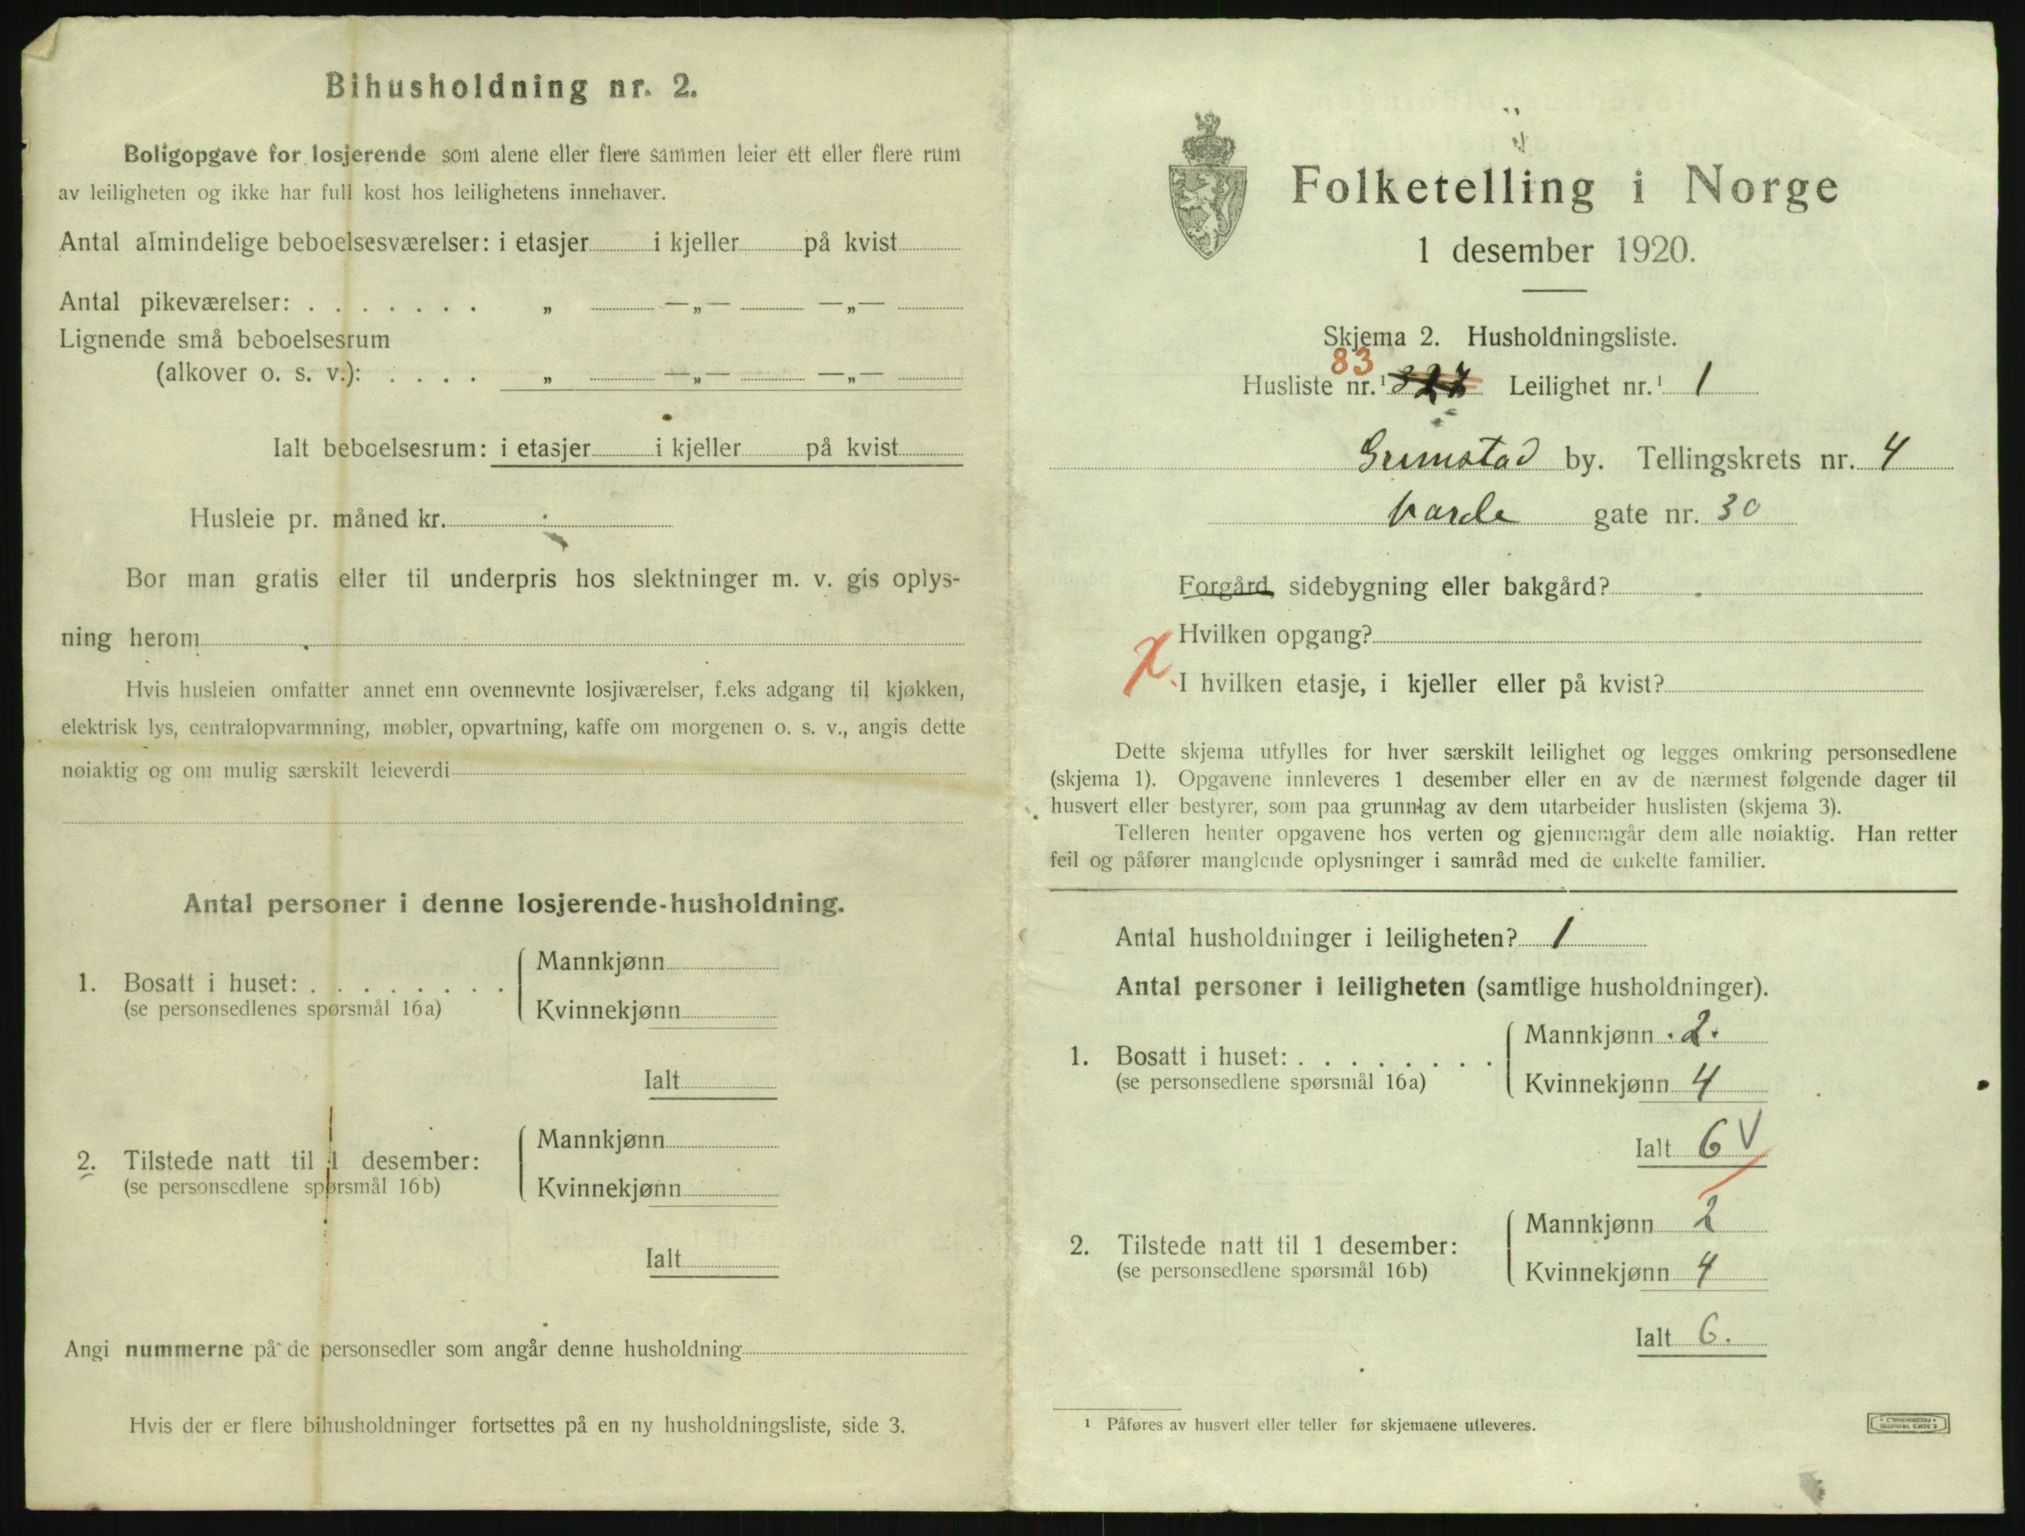 Bihusholdning nr. 2.
Boligopgave for losjerende som alene eller flere sammen leier ett eller flere rum
av leiligheten og ikke har full kost hos leilighetens innehaver.
Antal almindelige beboelsesværelser: i etasjer i kjeller på kvist
Antal pikeværelser: . . . . . . . „ —„— —„—
Lignende små beboelsesrum
(alkover o. s. v.): . . . . „ —„— —„—
Ialt beboelsesrum: i etasjer i kjeller på kvist
Husleie pr. måned kr.
Bor man gratis eller til underpris hos slektninger m. v. gis oplys-
ning herom
Hvis husleien omfatter annet enn ovennevnte losjiværelser, f.eks adgang til kjøkken,
elektrisk lys, centralopvarmning, møbler, opvartning, kaffe om morgenen o. s. v., angis dette
nøiaktig og om mulig særskilt leieverdi
Antal personer i denne losjerende-husholdning.
Mannkjønn
1. Bosatt i huset: . . . . . . . .
(se personsedlenes spørsmål 16a)
Kvinnekjønn
Ialt
Mannkjønn
2. Tilstede natt til 1 desember:
(se personsedlene spørsmål 16b)
Kvinnekjønn
Ialt
Angi nummerne på de personsedler som angår denne husholdning
Hvis der er flere bihusholdninger fortsettes på en ny husholdningsliste, side 3.
Folketelling i Norge
1 desember 1920.
Skjema 2. Husholdningsliste.
83
Husliste nr.¹ 327 Leilighet nr.¹ 1
Grimstad by. Tellingskrets nr. 4
Varde gate nr. 30
Forgård, sidebygning eller bakgård?
Hvilken opgang?
X I hvilken etasje, i kjeller eller på kvist?
Dette skjema utfylles for hver særskilt leilighet og legges omkring personsedlene
(skjema 1). Opgavene innleveres 1 desember eller en av de nærmest følgende dager til
husvert eller bestyrer, som paa grunnlag av dem utarbeider huslisten (skjema 3).
Telleren henter opgavene hos verten og gjennemgår dem alle nøiaktig. Han retter
feil og påfører manglende oplysninger i samråd med de enkelte familier.
Antal husholdninger i leiligheten? 1
Antal personer i leiligheten (samtlige husholdninger).
Mannkjønn 2.
1. Bosatt i huset: . . . . . . . .
(se personsedlene spørsmål 16a)
Kvinnekjønn 4
Ialt 6 V
Mannkjønn 2
2. Tilstede natt til 1 desember:
(se personsedlene spørsmål 16b)
Kvinnekjønn 4
Ialt 6.
¹ Påføres av husvert eller teller før skjemaene utleveres.